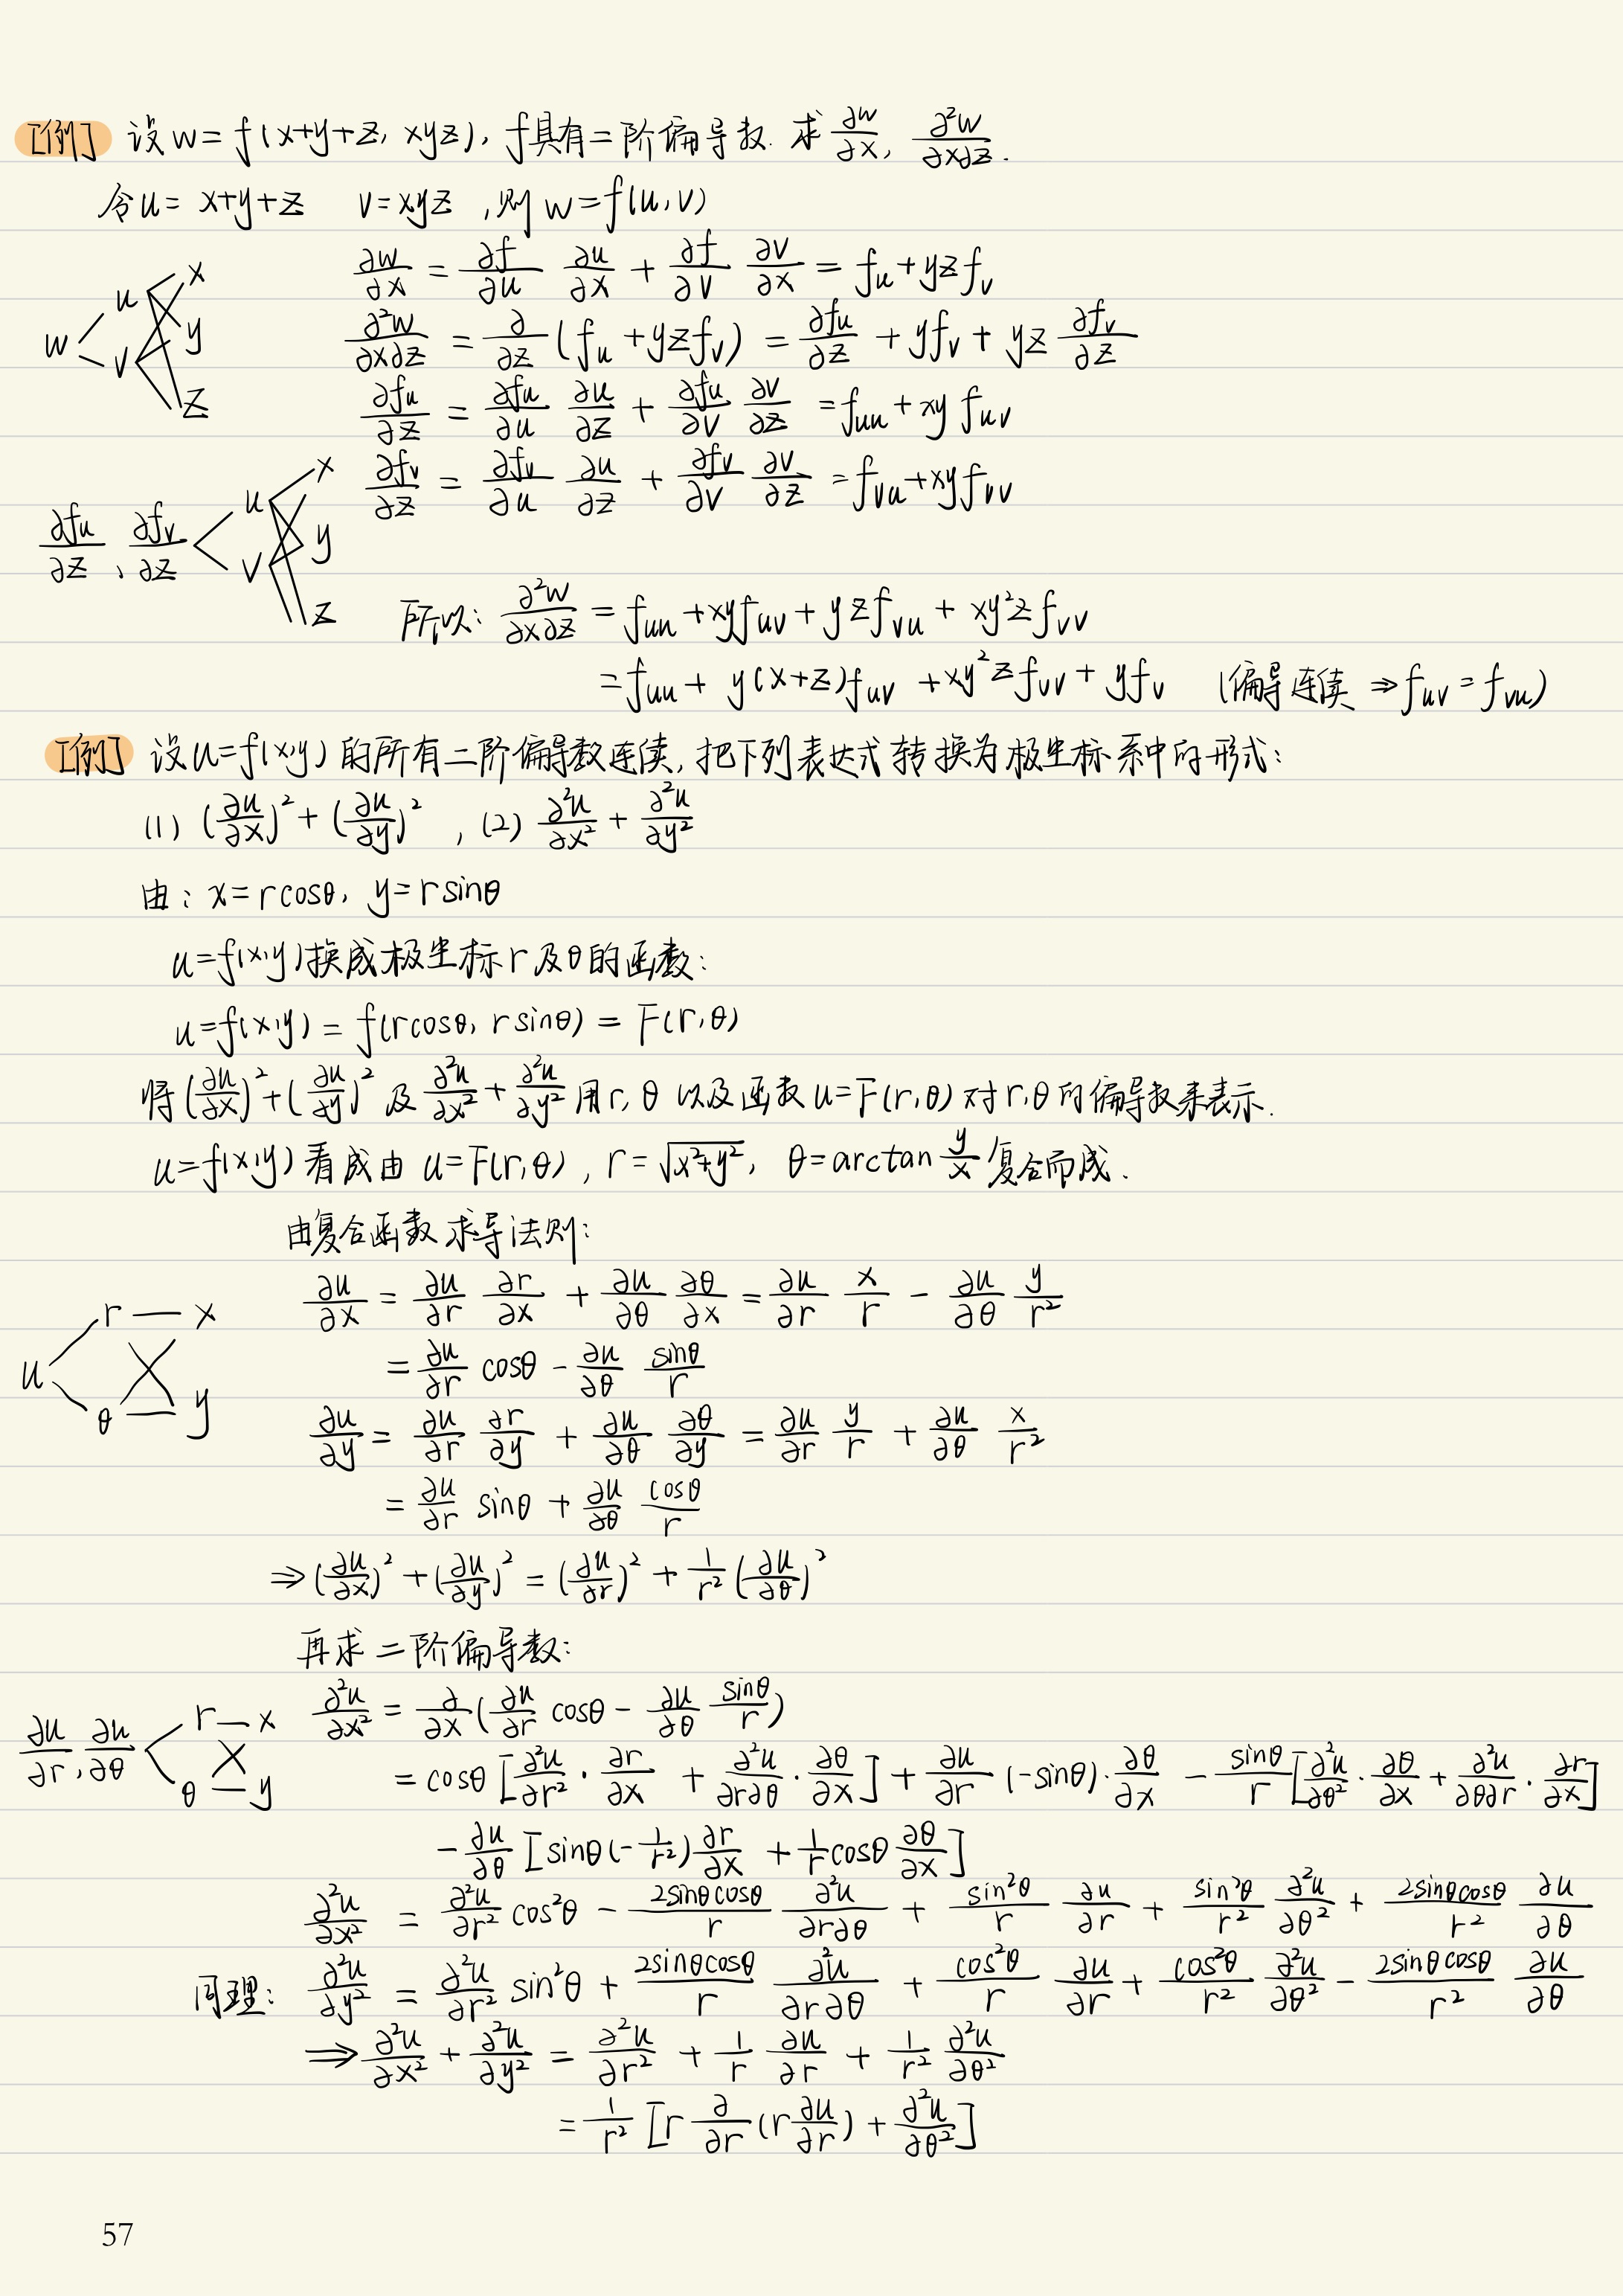 [例] 设 w = f(x+y+z, xyz), f具有二阶偏导数. 求 ∂w/∂x, ∂²w/∂x∂z.
令 u = x+y+z  v = xyz , 则 w = f(u,v)
∂w/∂x = ∂f/∂u ∂u/∂x + ∂f/∂v ∂v/∂x = f_u + yz f_v
w u v x y z
∂²w/∂x∂z = ∂/∂z (f_u + yz f_v) = ∂f_u/∂z + y f_v + yz ∂f_v/∂z
∂f_u/∂z = ∂f_u/∂u ∂u/∂z + ∂f_u/∂v ∂v/∂z = f_uu + xy f_uv
∂f_v/∂z = ∂f_v/∂u ∂u/∂z + ∂f_v/∂v ∂v/∂z = f_vu + xy f_vv
∂f_u/∂z 、 ∂f_v/∂z u v x y z
所以: ∂²w/∂x∂z = f_uu + xy f_uv + yz f_vu + xy²z f_vv
= f_uu + y(x+z) f_uv + xy²z f_vv + y f_v (偏导连续 ⇒ f_uv = f_vu)
[例] 设 u = f(x,y) 的所有二阶偏导数连续, 把下列表达式转换为极坐标系中的形式:
(1) (∂u/∂x)² + (∂u/∂y)² , (2) ∂²u/∂x² + ∂²u/∂y²
由: x = rcosθ, y = rsinθ
u = f(x,y)换成极坐标 r 及 θ 的函数:
u = f(x,y) = f(rcosθ, rsinθ) = F(r,θ)
将 (∂u/∂x)² + (∂u/∂y)² 及 ∂²u/∂x² + ∂²u/∂y² 用 r, θ 以及函数 u = F(r,θ) 对 r,θ 的偏导数来表示.
u = f(x,y) 看成由 u = F(r,θ), r = √(x²+y²), θ = arctan y/x 复合而成.
由复合函数求导法则:
∂u/∂x = ∂u/∂r ∂r/∂x + ∂u/∂θ ∂θ/∂x = ∂u/∂r x/r − ∂u/∂θ y/r²
u r θ x y
= ∂u/∂r cosθ − ∂u/∂θ sinθ/r
∂u/∂y = ∂u/∂r ∂r/∂y + ∂u/∂θ ∂θ/∂y = ∂u/∂r y/r + ∂u/∂θ x/r²
= ∂u/∂r sinθ + ∂u/∂θ cosθ/r
⇒ (∂u/∂x)² + (∂u/∂y)² = (∂u/∂r)² + 1/r² (∂u/∂θ)²
再求二阶偏导数:
∂²u/∂x² = ∂/∂x (∂u/∂r cosθ − ∂u/∂θ sinθ/r)
∂u/∂r , ∂u/∂θ r θ x y
= cosθ [∂²u/∂r² · ∂r/∂x + ∂²u/∂r∂θ · ∂θ/∂x] + ∂u/∂r (−sinθ) · ∂θ/∂x − sinθ/r [∂²u/∂θ² · ∂θ/∂x + ∂²u/∂θ∂r · ∂r/∂x]
− ∂u/∂θ [sinθ(−1/r²) ∂r/∂x + 1/r cosθ ∂θ/∂x]
∂²u/∂x² = ∂²u/∂r² cos²θ − 2sinθcosθ/r ∂²u/∂r∂θ + sin²θ/r ∂u/∂r + sin²θ/r² ∂²u/∂θ² + 2sinθcosθ/r² ∂u/∂θ
同理: ∂²u/∂y² = ∂²u/∂r² sin²θ + 2sinθcosθ/r ∂²u/∂r∂θ + cos²θ/r ∂u/∂r + cos²θ/r² ∂²u/∂θ² − 2sinθcosθ/r² ∂u/∂θ
⇒ ∂²u/∂x² + ∂²u/∂y² = ∂²u/∂r² + 1/r ∂u/∂r + 1/r² ∂²u/∂θ²
= 1/r² [r ∂/∂r (r ∂u/∂r) + ∂²u/∂θ²]
57